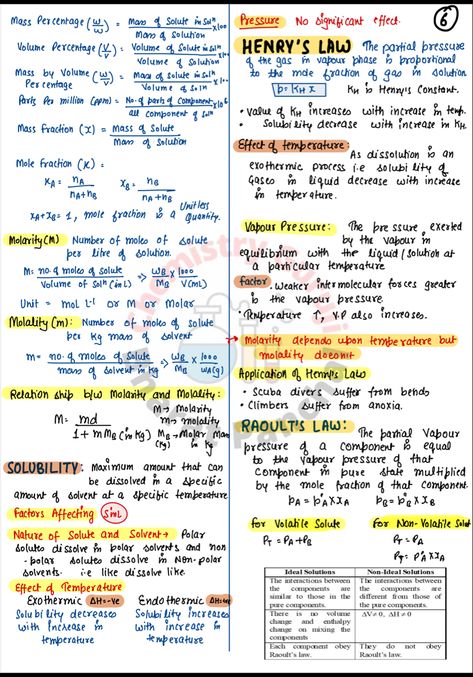 Mass Percentage (w/w) = Mass of Solute in Solⁿ / Mass of Solution × 100
Volume Percentage (V/V) = Volume of Solute in Solⁿ / Volume of Solution × 100
Mass by Volume Percentage (w/V) = Mass of Solute in Solⁿ / Volume of Solⁿ × 100
Parts Per million (ppm) = No. of parts of Component / all component of Solⁿ × 10⁶
Mass Fraction (x) = Mass of Solute / Mass of Solution
Mole Fraction (x) =
xA = nA / nA+nB   xB = nB / nA+nB
xA+xB = 1, mole fraction is a Unitless quantity.
Molarity(M) Number of moles of solute
per litre of solution.
M = no. of moles of Solute / Volume of Solⁿ (in L) ⇒ WB / MB × 1000 / V(mL)
Unit = mol L⁻¹ or M or Molar
Molality (m): Number of moles of solute
per Kg mass of solvent
m = no. of moles of Solute / mass of solvent in Kg ⇒ WB / MB × 1000 / WA(g)
Relation ship b/w Molarity and Molality:
M = md / 1 + m MB (in Kg)
M → Molarity
m → Molality
MB → Molar Mass in Kg
SOLUBILITY: Maximum amount that can
be dissolved in a specific
amount of solvent at a specific temperature
Factors Affecting
Nature of Solute and Solvent → Polar
Solute dissolve in polar solvents and non
-polar solutes dissolve in Non-polar
Solvents. i.e like dissolve like.
Effect of Temperature
Exothermic ΔH=-ve   Endothermic
Solubility decreases   Solubility increases
with increase in   with increase in
temperature   temperature
Pressure No significant effect.
6
HENRY'S LAW The partial pressure
of the gas in vapour phase is proportional
to the mole fraction of gas in solution.
p = KH x   KH is Henry's Constant.
• Value of KH increases with increase in temp.
• Solubility decrease with increase in KH.
Effect of temperature:
As dissolution is an
exothermic process i.e solubility of
Gases in liquid decrease with increase
in temperature.
Vapour Pressure: The pressure exerted
by the vapour in
equilibrium with the liquid/solution at
a particular temperature
factor. Weaker intermolecular forces greater
is the vapour pressure.
• Temperature ↑, V.P also increases.
→ Molarity depends upon temperature but
molality doesnit
Application of Henry's Law
• Scuba divers suffer from bends
• Climbers suffer from anoxia.
RAOULT'S LAW: The partial Vapour
pressure of a Component is equal
to the vapour pressure of that
Component in pure state multiplied
by the mole fraction of that component.
pA = p°A × xA   pB = p°B × xB
for Volatile Solute   for Non-Volatile Solut
PT = PA + PB   PT = PA
PT = P°A × xA
Ideal Solutions   Non-Ideal Solutions
The interactions between   The interactions between
the components are   the components are
similar to those in the   different from those of
pure components.   the pure components.
There is no volume   ΔV ≠ 0, ΔH ≠ 0
change and enthalpy
change on mixing the
components
Each component obey   They do not obey
Raoult's law.   Raoult's law.